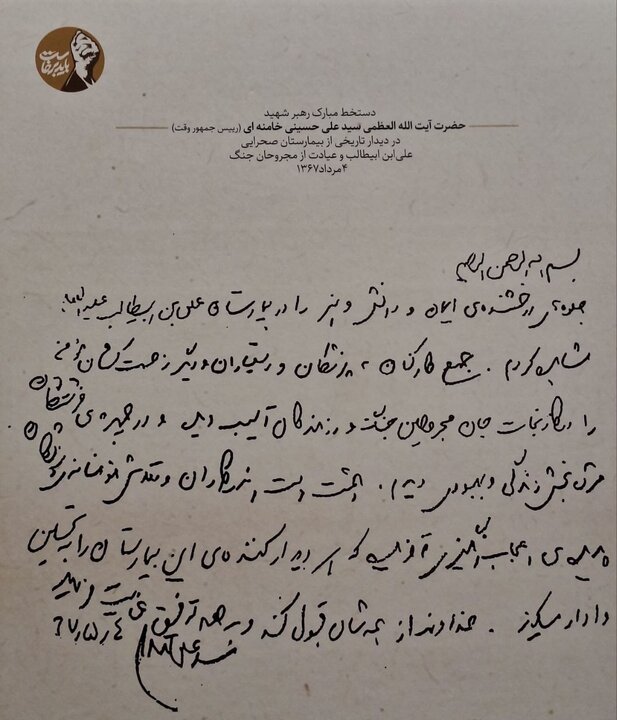 باید برخاست
دستخط مبارک رهبر شهید
حضرت آیت الله العظمی سید علی حسینی خامنه ای (رییس جمهور وقت)
در دیدار تاریخی از بیمارستان صحرایی
علی‌ابن ابیطالب و عیادت از مجروحان جنگ
۴مرداد۱۳۶۷
بسم الله الرحمن الرحیم
جلوه‌ی درخشنده‌ی ایمان و دانش و هنر را در بیمارستان علی بن ابیطالب علیه السلام
مشاهده کردم . جمع کارکنان ، پزشکان و دستیاران و دیگر زحمت کشان مؤمنی
را در کار نجات جان مجروحین جنگ و رزمندگان آسیب دیده و در چهره‌ی فرشتگان
مژده بخش زندگی و بهبودی دیدم . همت دست اندرکاران و تلاش مخلصانه‌ی پزشکان
پدیده‌ی اعجاب انگیزی آفریده که هر دیدار کننده‌ی این بیمارستان را به تحسین
وادار میکند . خداوند از همه‌شان قبول کند و به همه توفیق عنایت فرماید
سید علی خامنه‌ای
۶۷/۵/۴